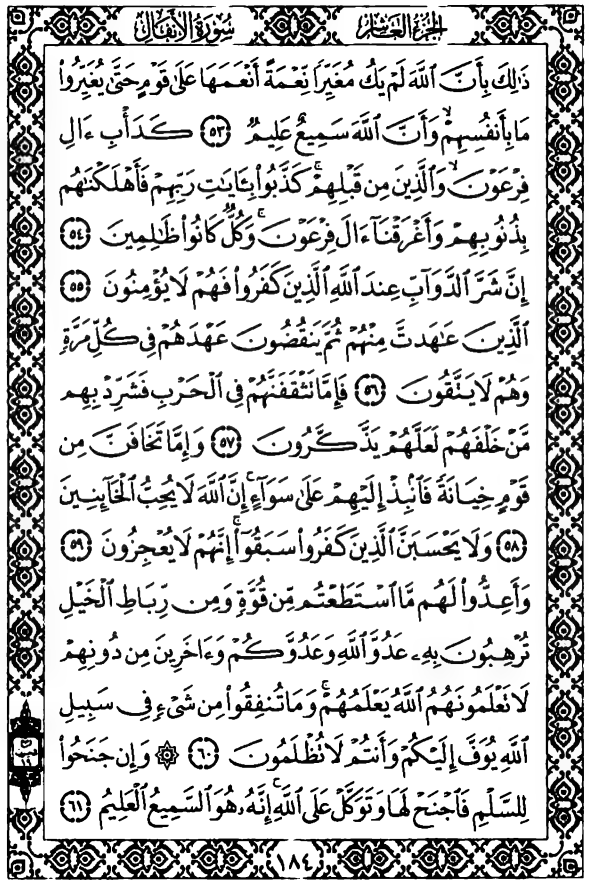 الجزء العاشر سورة الأنفال
ذَٰلِكَ بِأَنَّ ٱللَّهَ لَمْ يَكُ مُغَيِّرًا نِّعْمَةً أَنْعَمَهَا عَلَىٰ قَوْمٍ حَتَّىٰ يُغَيِّرُوا۟
مَا بِأَنفُسِهِمْ ۙ وَأَنَّ ٱللَّهَ سَمِيعٌ عَلِيمٌ ٥٣ كَدَأْبِ ءَالِ
فِرْعَوْنَ ۙ وَٱلَّذِينَ مِن قَبْلِهِمْ ۚ كَذَّبُوا۟ بِـَٔايَـٰتِ رَبِّهِمْ فَأَهْلَكْنَـٰهُم
بِذُنُوبِهِمْ وَأَغْرَقْنَآ ءَالَ فِرْعَوْنَ ۚ وَكُلٌّ كَانُوا۟ ظَـٰلِمِينَ ٥٤
إِنَّ شَرَّ ٱلدَّوَآبِّ عِندَ ٱللَّهِ ٱلَّذِينَ كَفَرُوا۟ فَهُمْ لَا يُؤْمِنُونَ ٥٥
ٱلَّذِينَ عَـٰهَدتَّ مِنْهُمْ ثُمَّ يَنقُضُونَ عَهْدَهُمْ فِى كُلِّ مَرَّةٍ
وَهُمْ لَا يَتَّقُونَ ٥٦ فَإِمَّا تَثْقَفَنَّهُمْ فِى ٱلْحَرْبِ فَشَرِّدْ بِهِم
مَّنْ خَلْفَهُمْ لَعَلَّهُمْ يَذَّكَّرُونَ ٥٧ وَإِمَّا تَخَافَنَّ مِن
قَوْمٍ خِيَانَةً فَٱنۢبِذْ إِلَيْهِمْ عَلَىٰ سَوَآءٍ ۚ إِنَّ ٱللَّهَ لَا يُحِبُّ ٱلْخَآئِنِينَ
٥٨ وَلَا يَحْسَبَنَّ ٱلَّذِينَ كَفَرُوا۟ سَبَقُوٓا۟ ۚ إِنَّهُمْ لَا يُعْجِزُونَ ٥٩
وَأَعِدُّوا۟ لَهُم مَّا ٱسْتَطَعْتُم مِّن قُوَّةٍ وَمِن رِّبَاطِ ٱلْخَيْلِ
تُرْهِبُونَ بِهِۦ عَدُوَّ ٱللَّهِ وَعَدُوَّكُمْ وَءَاخَرِينَ مِن دُونِهِمْ
لَا تَعْلَمُونَهُمُ ٱللَّهُ يَعْلَمُهُمْ ۚ وَمَا تُنفِقُوا۟ مِن شَىْءٍ فِى سَبِيلِ
ٱللَّهِ يُوَفَّ إِلَيْكُمْ وَأَنتُمْ لَا تُظْلَمُونَ ٦٠ ۞ وَإِن جَنَحُوا۟
لِلسَّلْمِ فَٱجْنَحْ لَهَا وَتَوَكَّلْ عَلَى ٱللَّهِ ۚ إِنَّهُۥ هُوَ ٱلسَّمِيعُ ٱلْعَلِيمُ ٦١
١٨٤